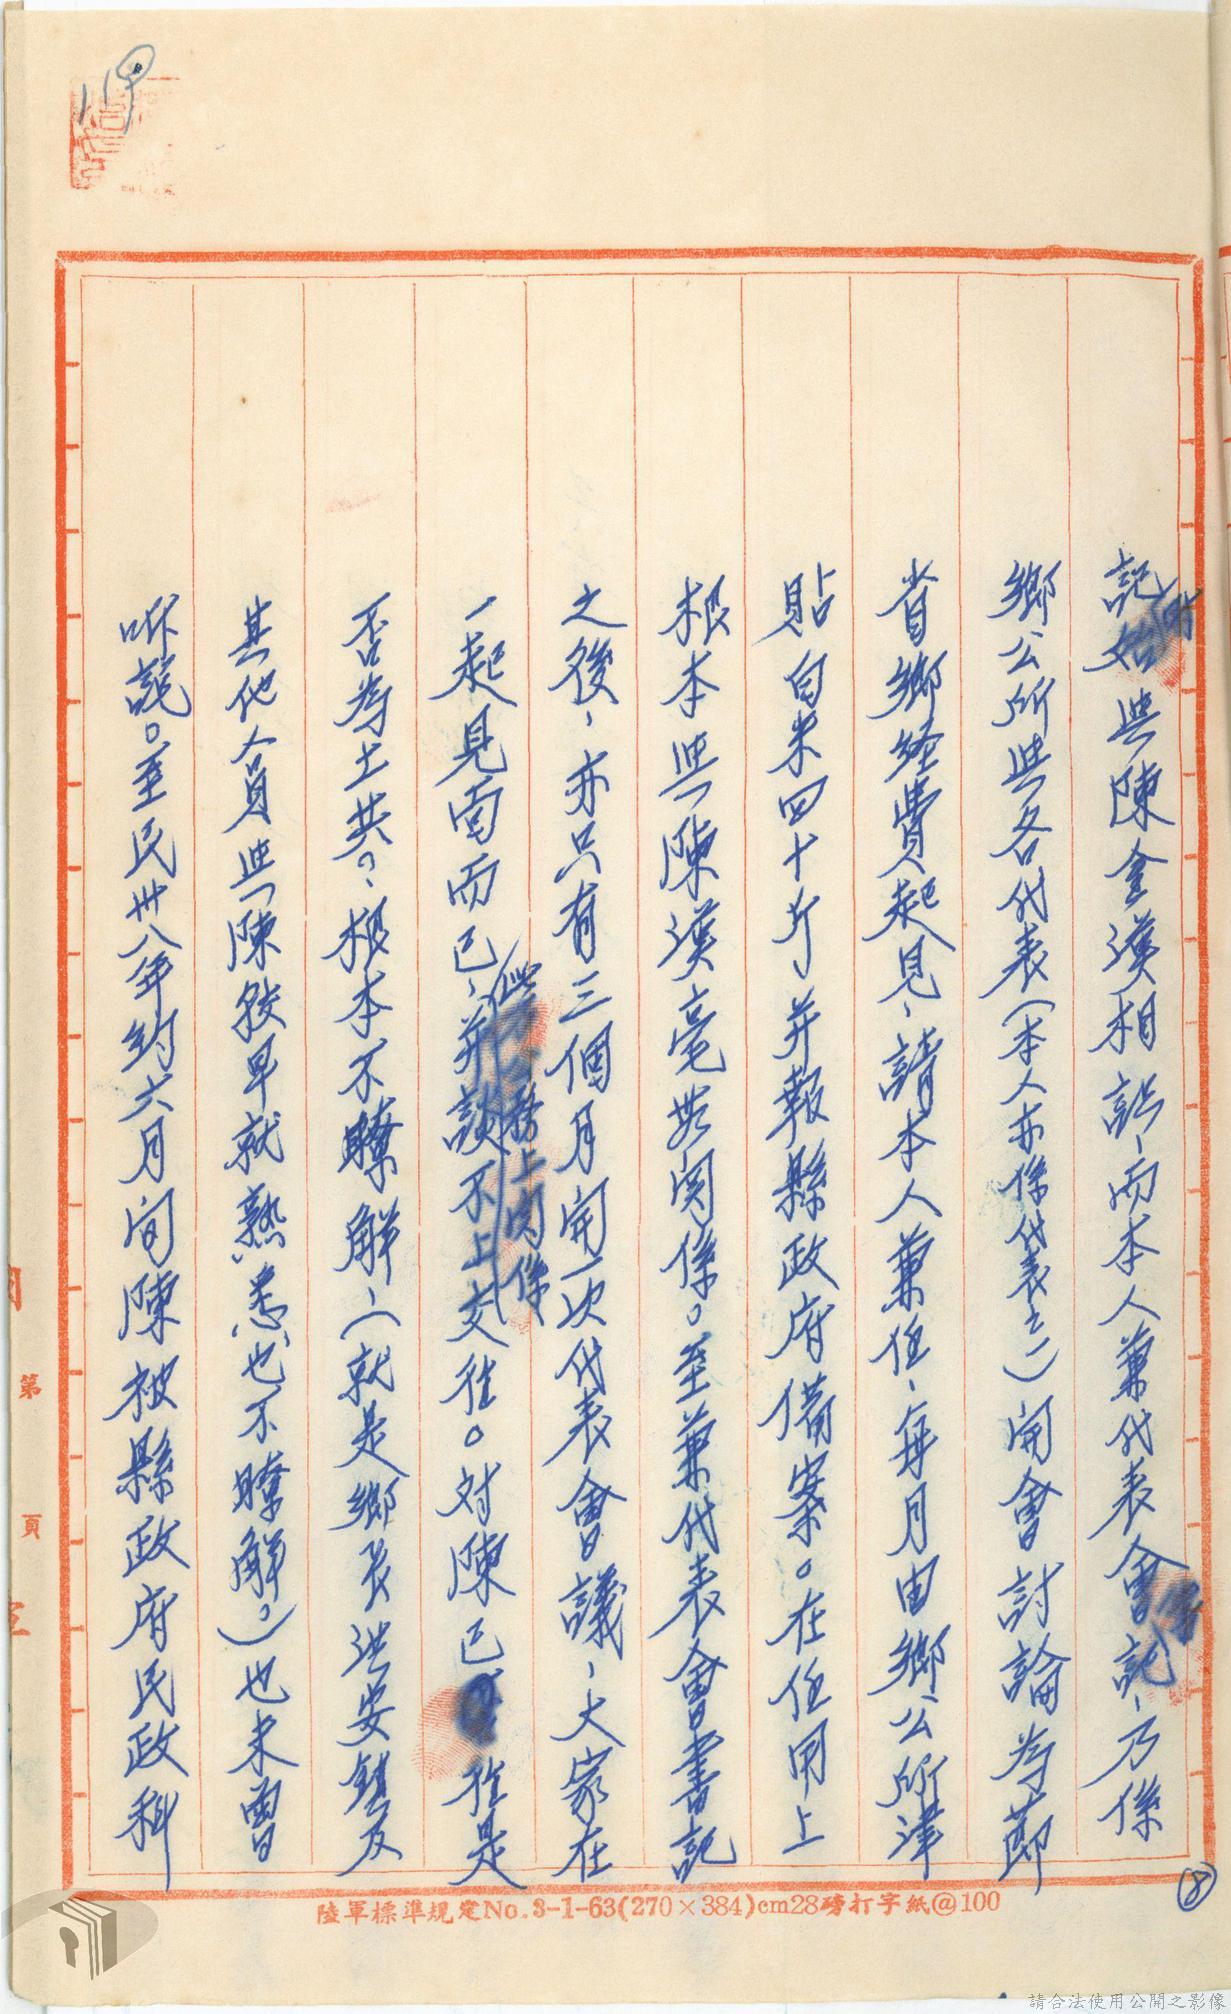 記始與陳金漢相認、而本人兼代表會書記、乃係
鄉公所與各代表(本人亦係代表之一)開會討論為節
省鄉經費起見、請本人兼任、每月由鄉公所津
貼白米四十斤并報縣政府備案。在任用上
根本與陳漢毫無関係。至兼代表會書記
之後、亦只有三個月開一次代表會議、大家在
一起見面而已、并談不上交往。対陳已往是
僅公務上関係
否為土共。、根本不瞭解、(就是鄉長洪安鎮及
其他人員與陳較早就熟悉也不瞭解。)也未曾
听説。至民卅八年約六月间陳被縣政府民政科
陸軍標準規定No.3-1-63(270×384)cm28磅打字紙@100
⑧
第 頁
請合法使用公開之影像